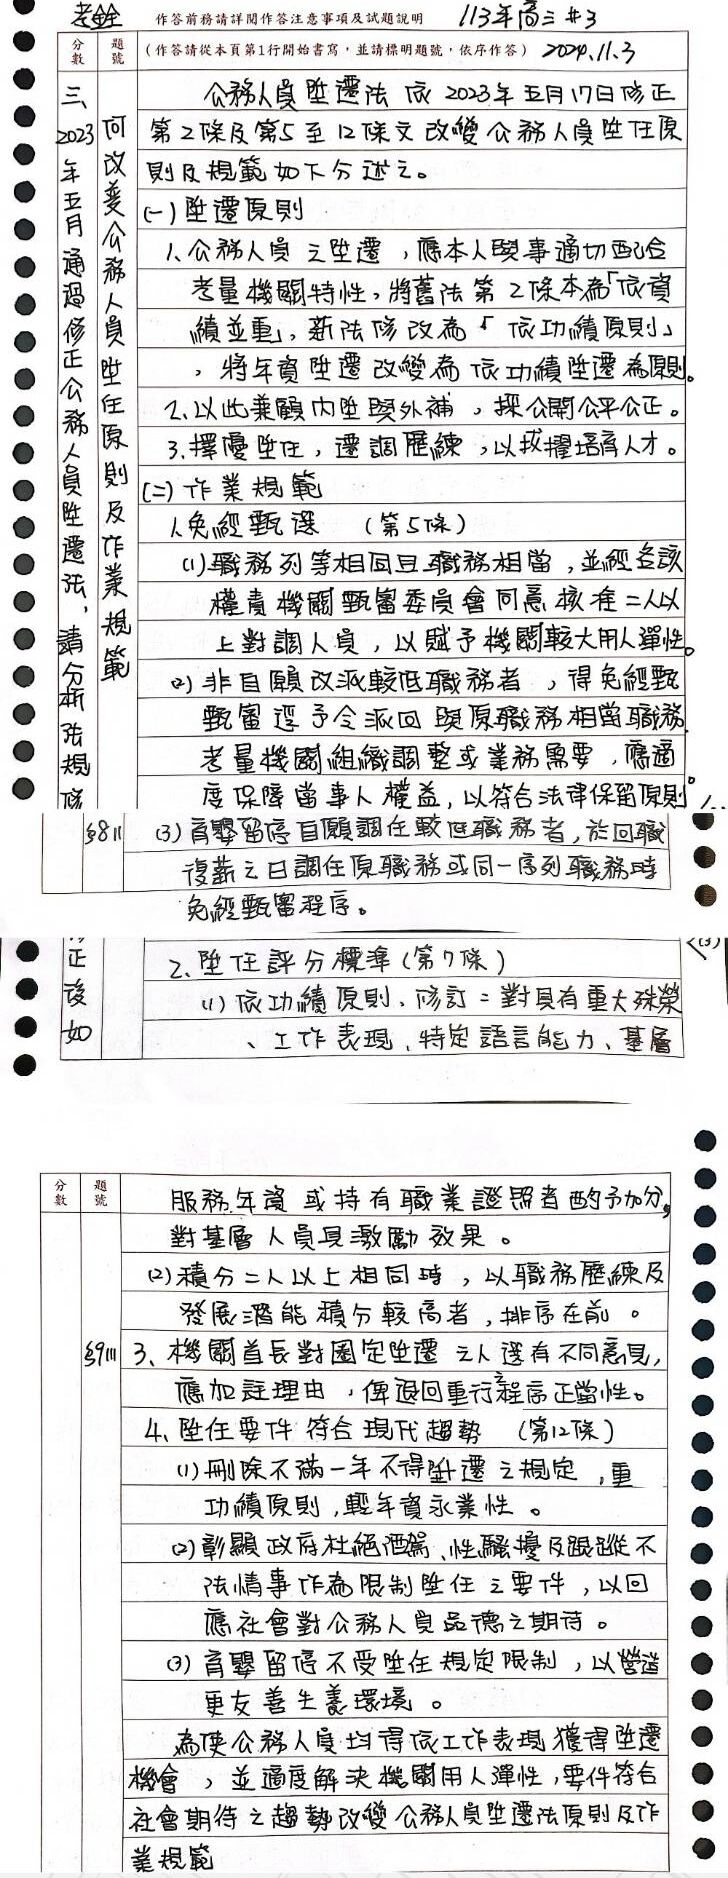 考銓 作答前務請詳閱作答注意事項及試題說明 113年高三#3
分數 題號 (作答請從本頁第1行開始書寫,並請標明題號,依序作答) 2024.11.3
三、2023年五月通過修正公務人員陞遷法,請分析法規修正後如
何改變公務人員陞任原則及作業規範
公務人員陞遷法依2023年五月17日修正
第2條及第5至12條文改變公務人員陞任原
則及規範如下分述之。
(一)陞遷原則
1、公務人員之陞遷,應本人與事適切配合
考量機關特性,將舊法第2條本為「依資
績並重」,新法修改為「依功績原則」
,將年資陞遷改變為依功績陞遷為原則。
2、以此兼顧內陞與外補,採公開公平公正。
3、擇優陞任,遷調歷練,以拔擢培育人才。
(二)作業規範
1、免經甄選 (第5條)
(1)職務列等相同且職務相當,並經各該
權責機關甄審委員會同意核准二人以
上對調人員,以賦予機關較大用人彈性。
(2)非自願改派較低職務者,得免經甄
甄審逕予令派回與原職務相當職務
考量機關組織調整或業務需要,應適
度保障當事人權益,以符合法律保留原則。
§8II (3)育嬰留停自願調任較低職務者,於回職
復薪之日調任原職務或同一序列職務時
免經甄審程序。
<(3)
2、陞任評分標準(第7條)
(1)依功績原則、修訂:對具有重大殊榮
、工作表現、特定語言能力、基層
分數 題號
服務年資或持有職業證照者酌予加分,
對基層人員具激勵效果。
(2)積分二人以上相同時,以職務歷練及
發展潛能積分較高者,排序在前。
§9III 3、機關首長對圈定陞遷之人選有不同意見,
應加註理由,俾退回重行程序正當性。
4、陞任要件符合現代趨勢 (第12條)
(1)刪除不滿一年不得陞遷之規定,重
功績原則,輕年資永業性。
(2)彰顯政府杜絕酒駕、性騷擾及跟蹤不
法情事作為限制陞任之要件,以回
應社會對公務人員品德之期待。
(3)育嬰留停不受陞任規定限制,以營造
更友善生養環境。
為使公務人員均得依工作表現獲得陞遷
機會,並適度解決機關用人彈性,要件符合
社會期待之趨勢改變公務人員陞遷法原則及作
業規範